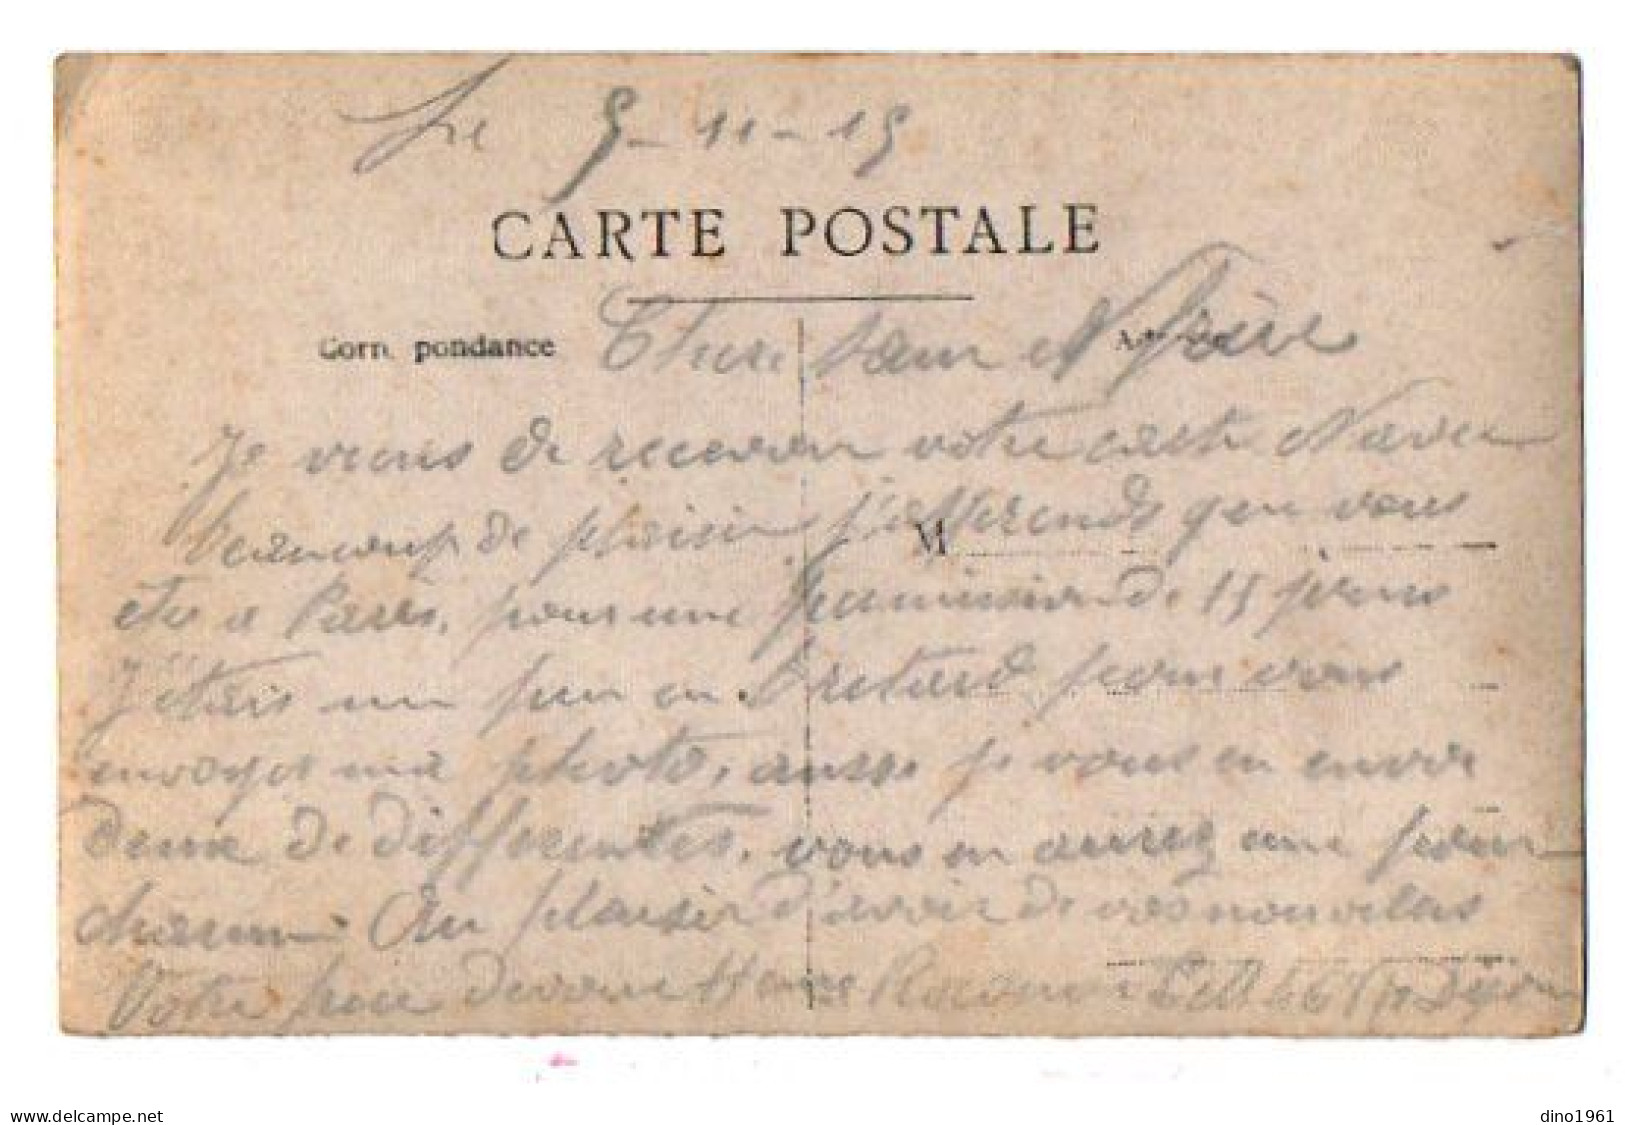 Le 9-11-15
CARTE POSTALE
Corr. pondance
Chere sœur et frère
Je viens de recevoir votre carte avec
beaucoup de plaisir j'apprends que vous
M
ete a Paris, pour une permission de 15 jours
J'étais un peu en retard pour vous
envoyer ma photo, aussi je vous en envoie
deux de differentes, vous en aurez une pour
chacun. Au plaisir d'avoir de vos nouvelles
Votre frère
delcampe.net
dino1961